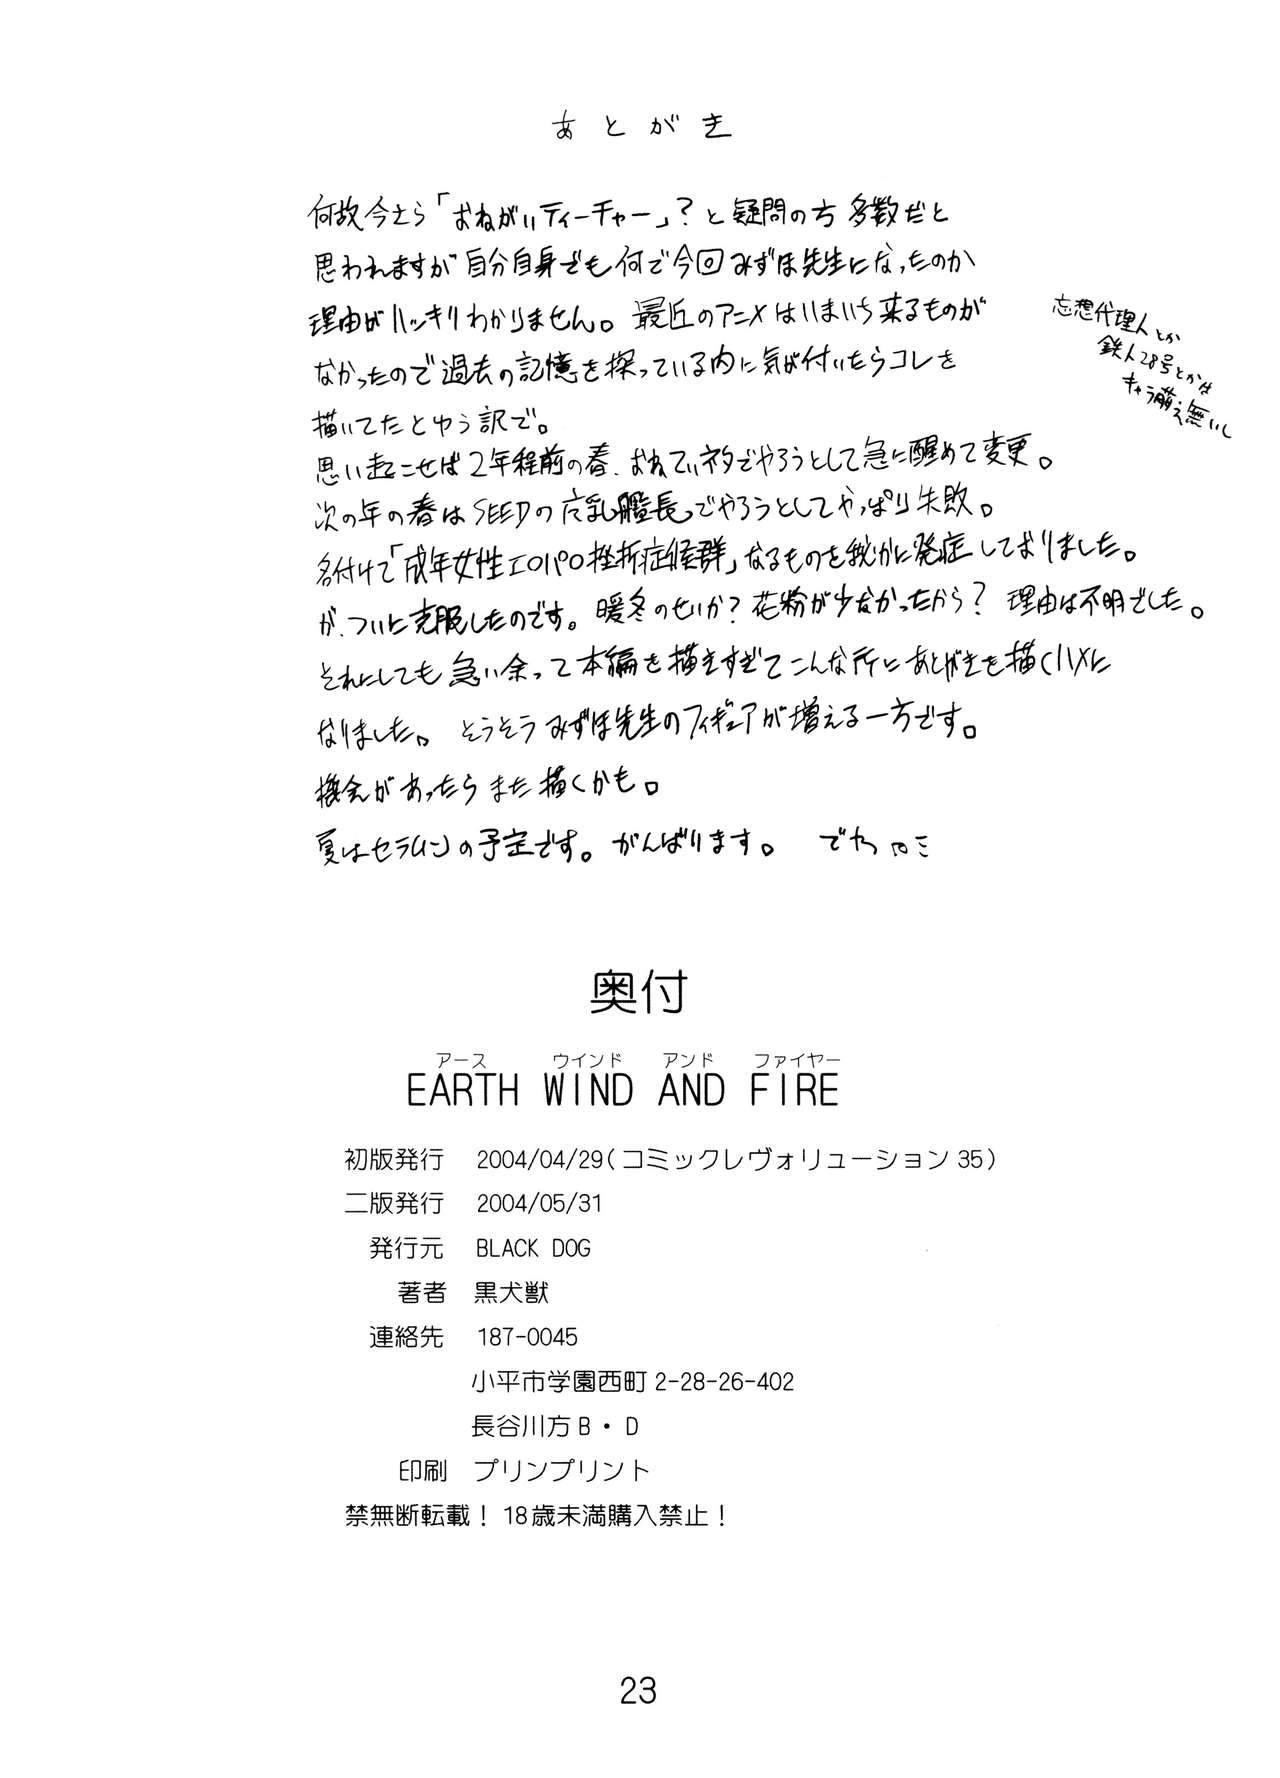 あとがき
何故今さら「おねがいティーチャー」？と疑問の方多数だと
思われますが自分自身でも何で今回みずほ先生になったのか
理由がハッキリわかりません。最近のアニメはいまいち来るものが
なかったので過去の記憶を探っている内に気が付いたらコレを
描いてたとゆう訳で。
妄想代理人とか
鉄人28号とかは
キャラ萌え無いし
思い起こせば2年程前の春、おねてぃネタでやろうとして急に醒めて変更。
次の年の春はSEEDの巨乳艦長でやろうとしてやっぱり失敗。
名付けて「成年女性エロパロ挫折症候群」なるものを密かに発症しておりました。
が、ついに克服したのです。暖冬のせいか？花粉が少なかったから？理由は不明でした。
それにしても急い余って本編を描きすぎてこんな所にあとがきを描くハメに
なりました。そうそうみずほ先生のフィギュアが増える一方です。
機会があったらまた描くかも。
夏はセラムンの予定です。がんばります。 でわ
奥付
アース ウインド アンド ファイヤー
EARTH WIND AND FIRE
初版発行 2004/04/29(コミックレヴォリューション35)
二版発行 2004/05/31
発行元 BLACK DOG
著者 黒犬獣
連絡先 187-0045
小平市学園西町2-28-26-402
長谷川方B・D
印刷 プリンプリント
禁無断転載！18歳未満購入禁止！
23